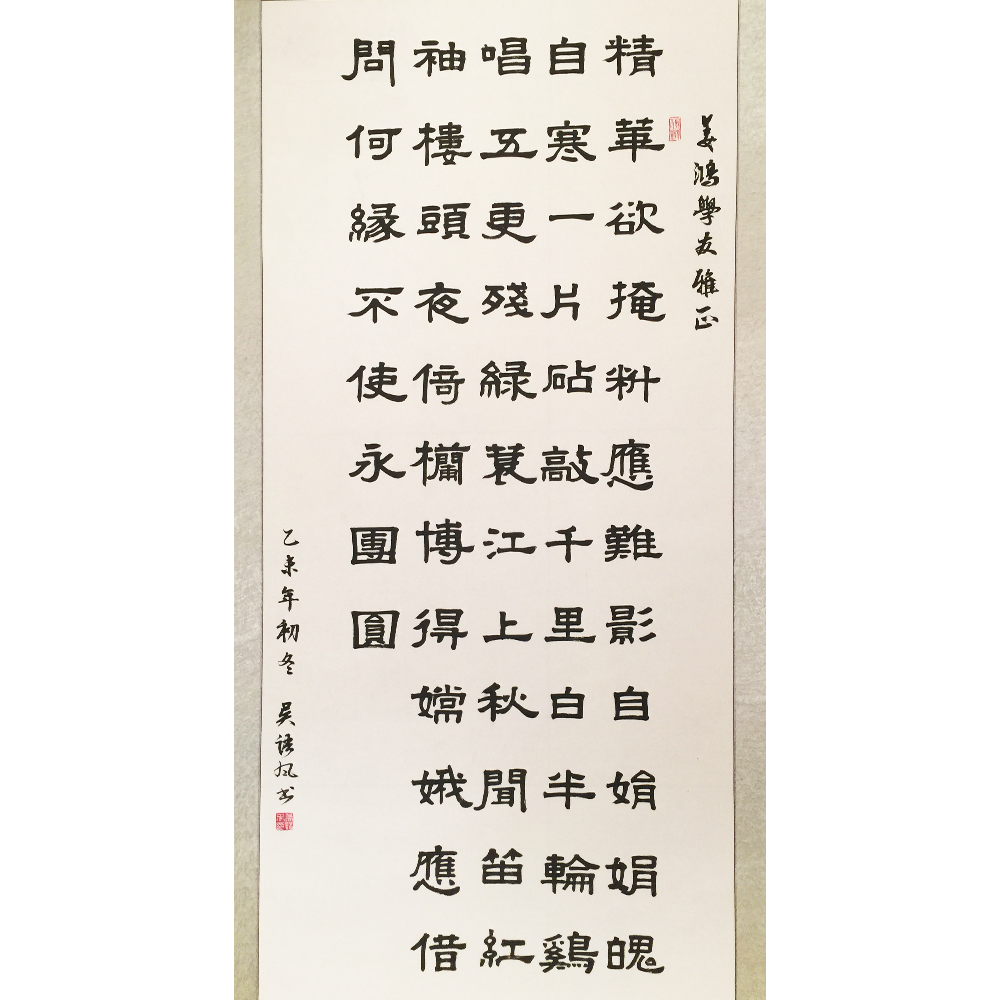 姜鴻學友雅正
精華欲掩料應難影自娟娟魄
自寒一片砧敲千里白半輪鷄
唱五更殘緑蓑江上秋聞笛紅
袖樓頭夜倚欄博得嫦娥應借
問何緣不使永團圓
乙未年初冬 吳語风书